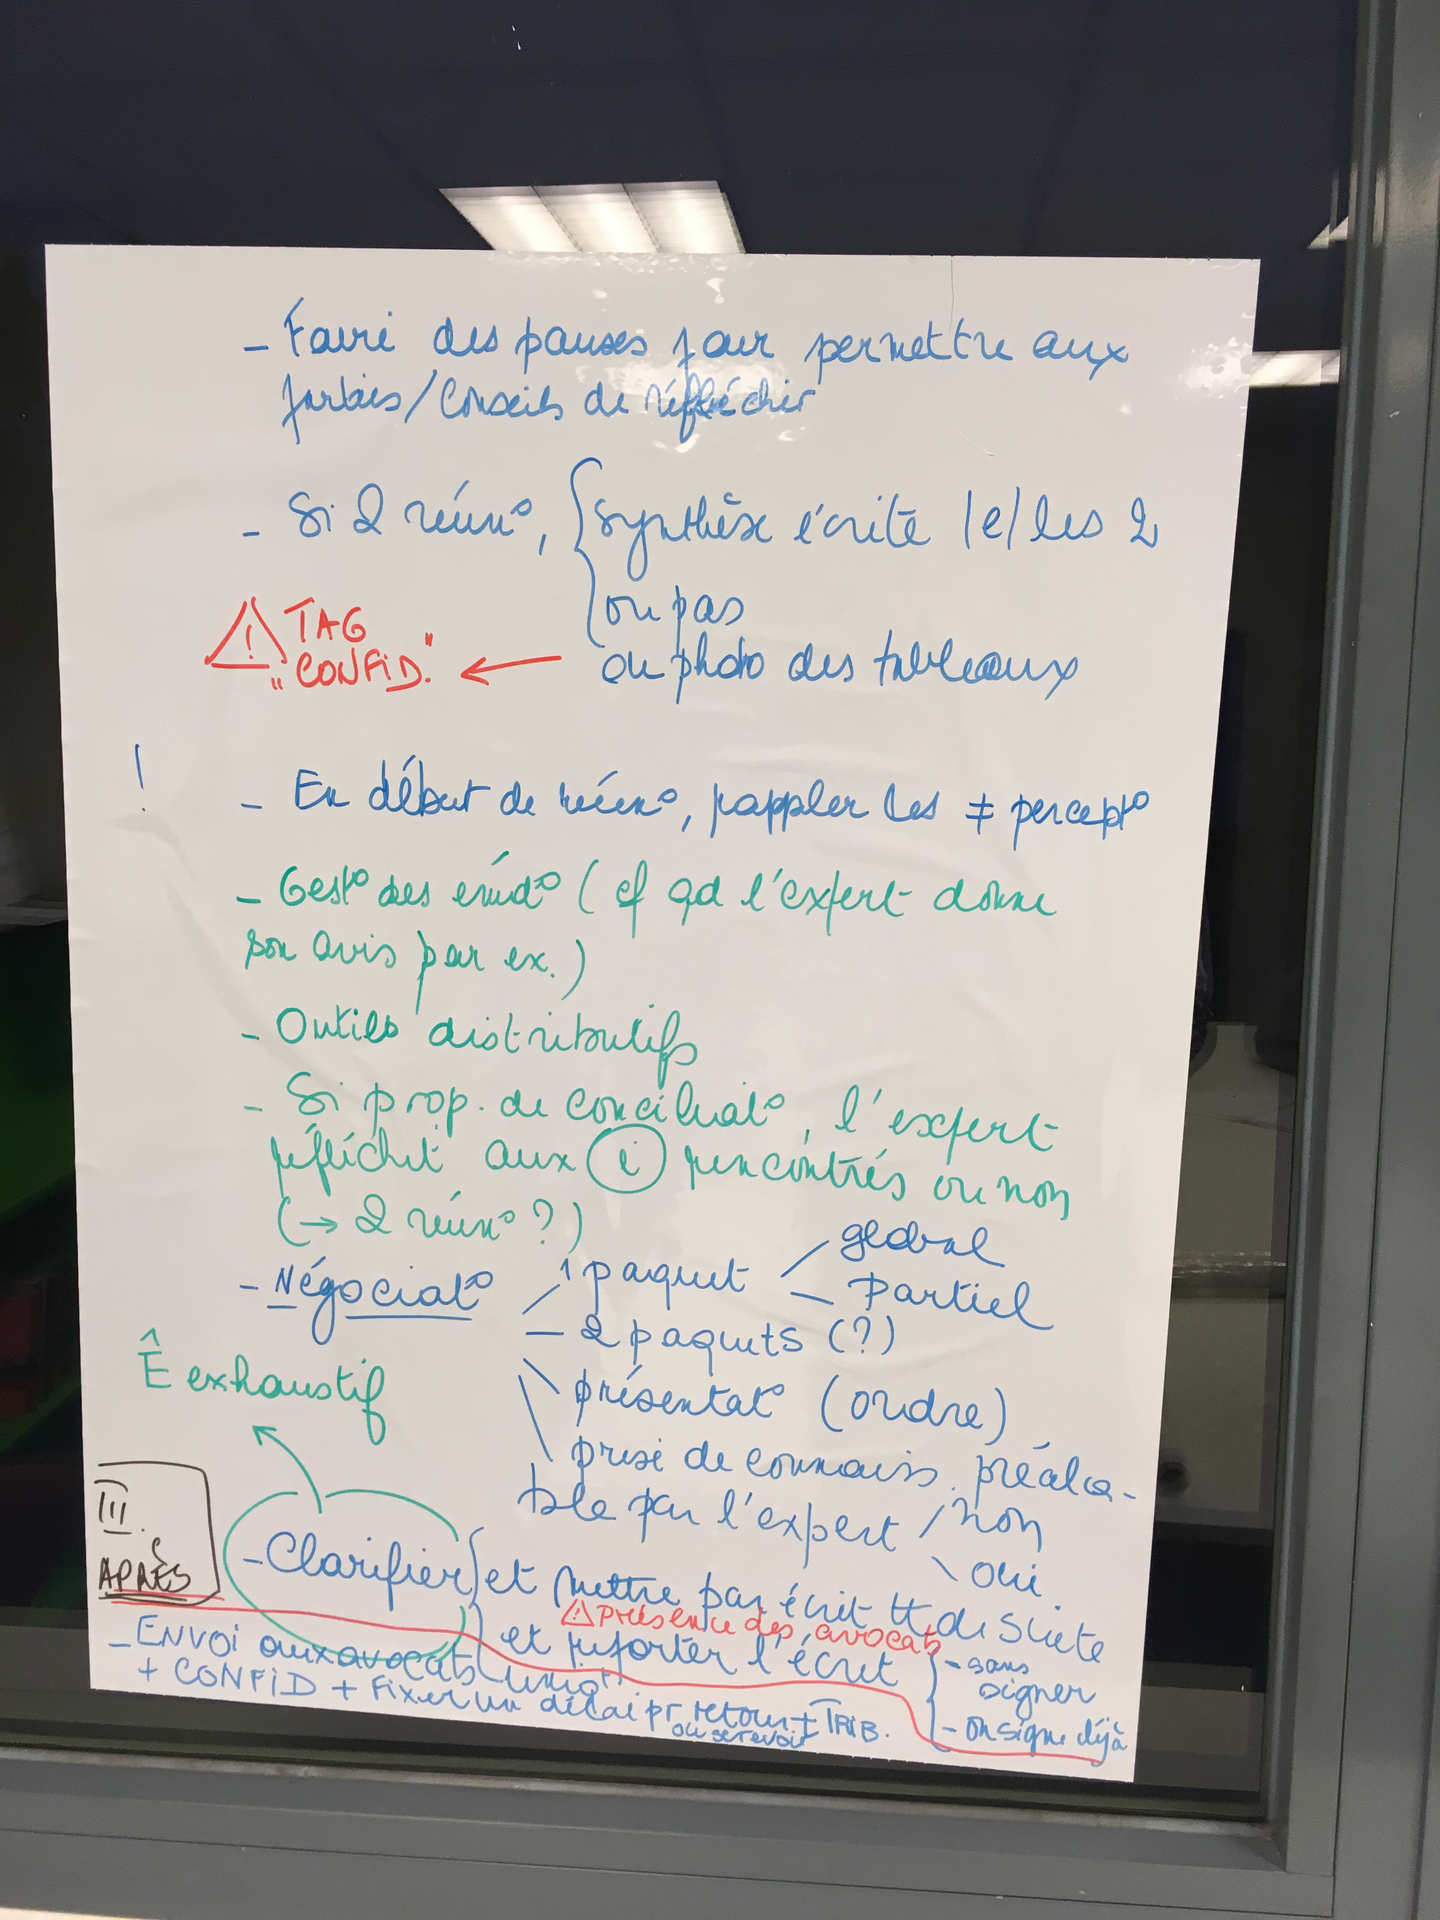 - Faire des pauses pour permettre aux
parties/Conseils de réfléchir
- Si 2 réun°, { synthèse écrite /e/ les 2
ou pas
ou photo des tableaux
⚠ TAG
"CONFID." ←
! - En début de réun°, rappler les ≠ percept°
- Gest° des émot° (cf qd l'expert donne
son avis par ex.)
- Outils distributifs
- Si prop. de conciliat°, l'expert
réfléchit aux (i) rencontrés ou non
(→ 2 réun° ?)
- Négociat°
1 paquet
global
Partiel
2 paquets (?)
présentat° (ordre)
prise de connaiss. préala-
ble par l'expert / non
\ oui
Ê exhaustif
- Clarifier } et mettre par écrit tt de suite
⚠ Présence des avocats
et reporter l'écrit
- sans
signer
- on signe déjà
III.
APRÈS
- ENVOI aux avocats
+ CONFID + Fixer un délai pr retour + TRIB.
ou se revoir